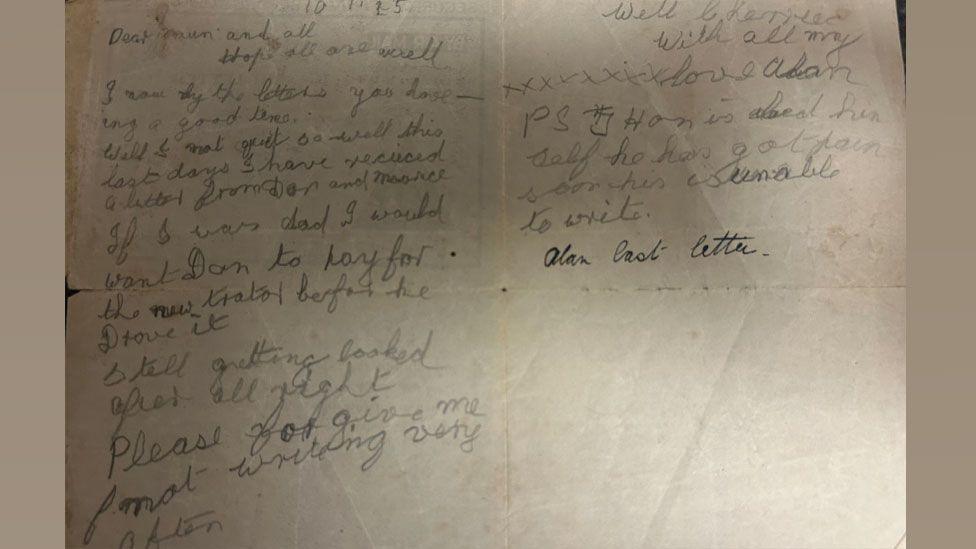 Dear mum and all
Hope all are well
I now by the letters you have-
ing a good time.
Well I not quit so well this
last days I have recieced
a letter from Dan and maurice
If I was dad I would
want Dan to pay for
the new trator befor he
Drove it
still getting looked
after all right
Please for give me
for not writing very
often
Well C
With all my
xxxxxxx love Alan
PS Han is
self he has got pain
soon his is unable
to write.
Alan last letter.